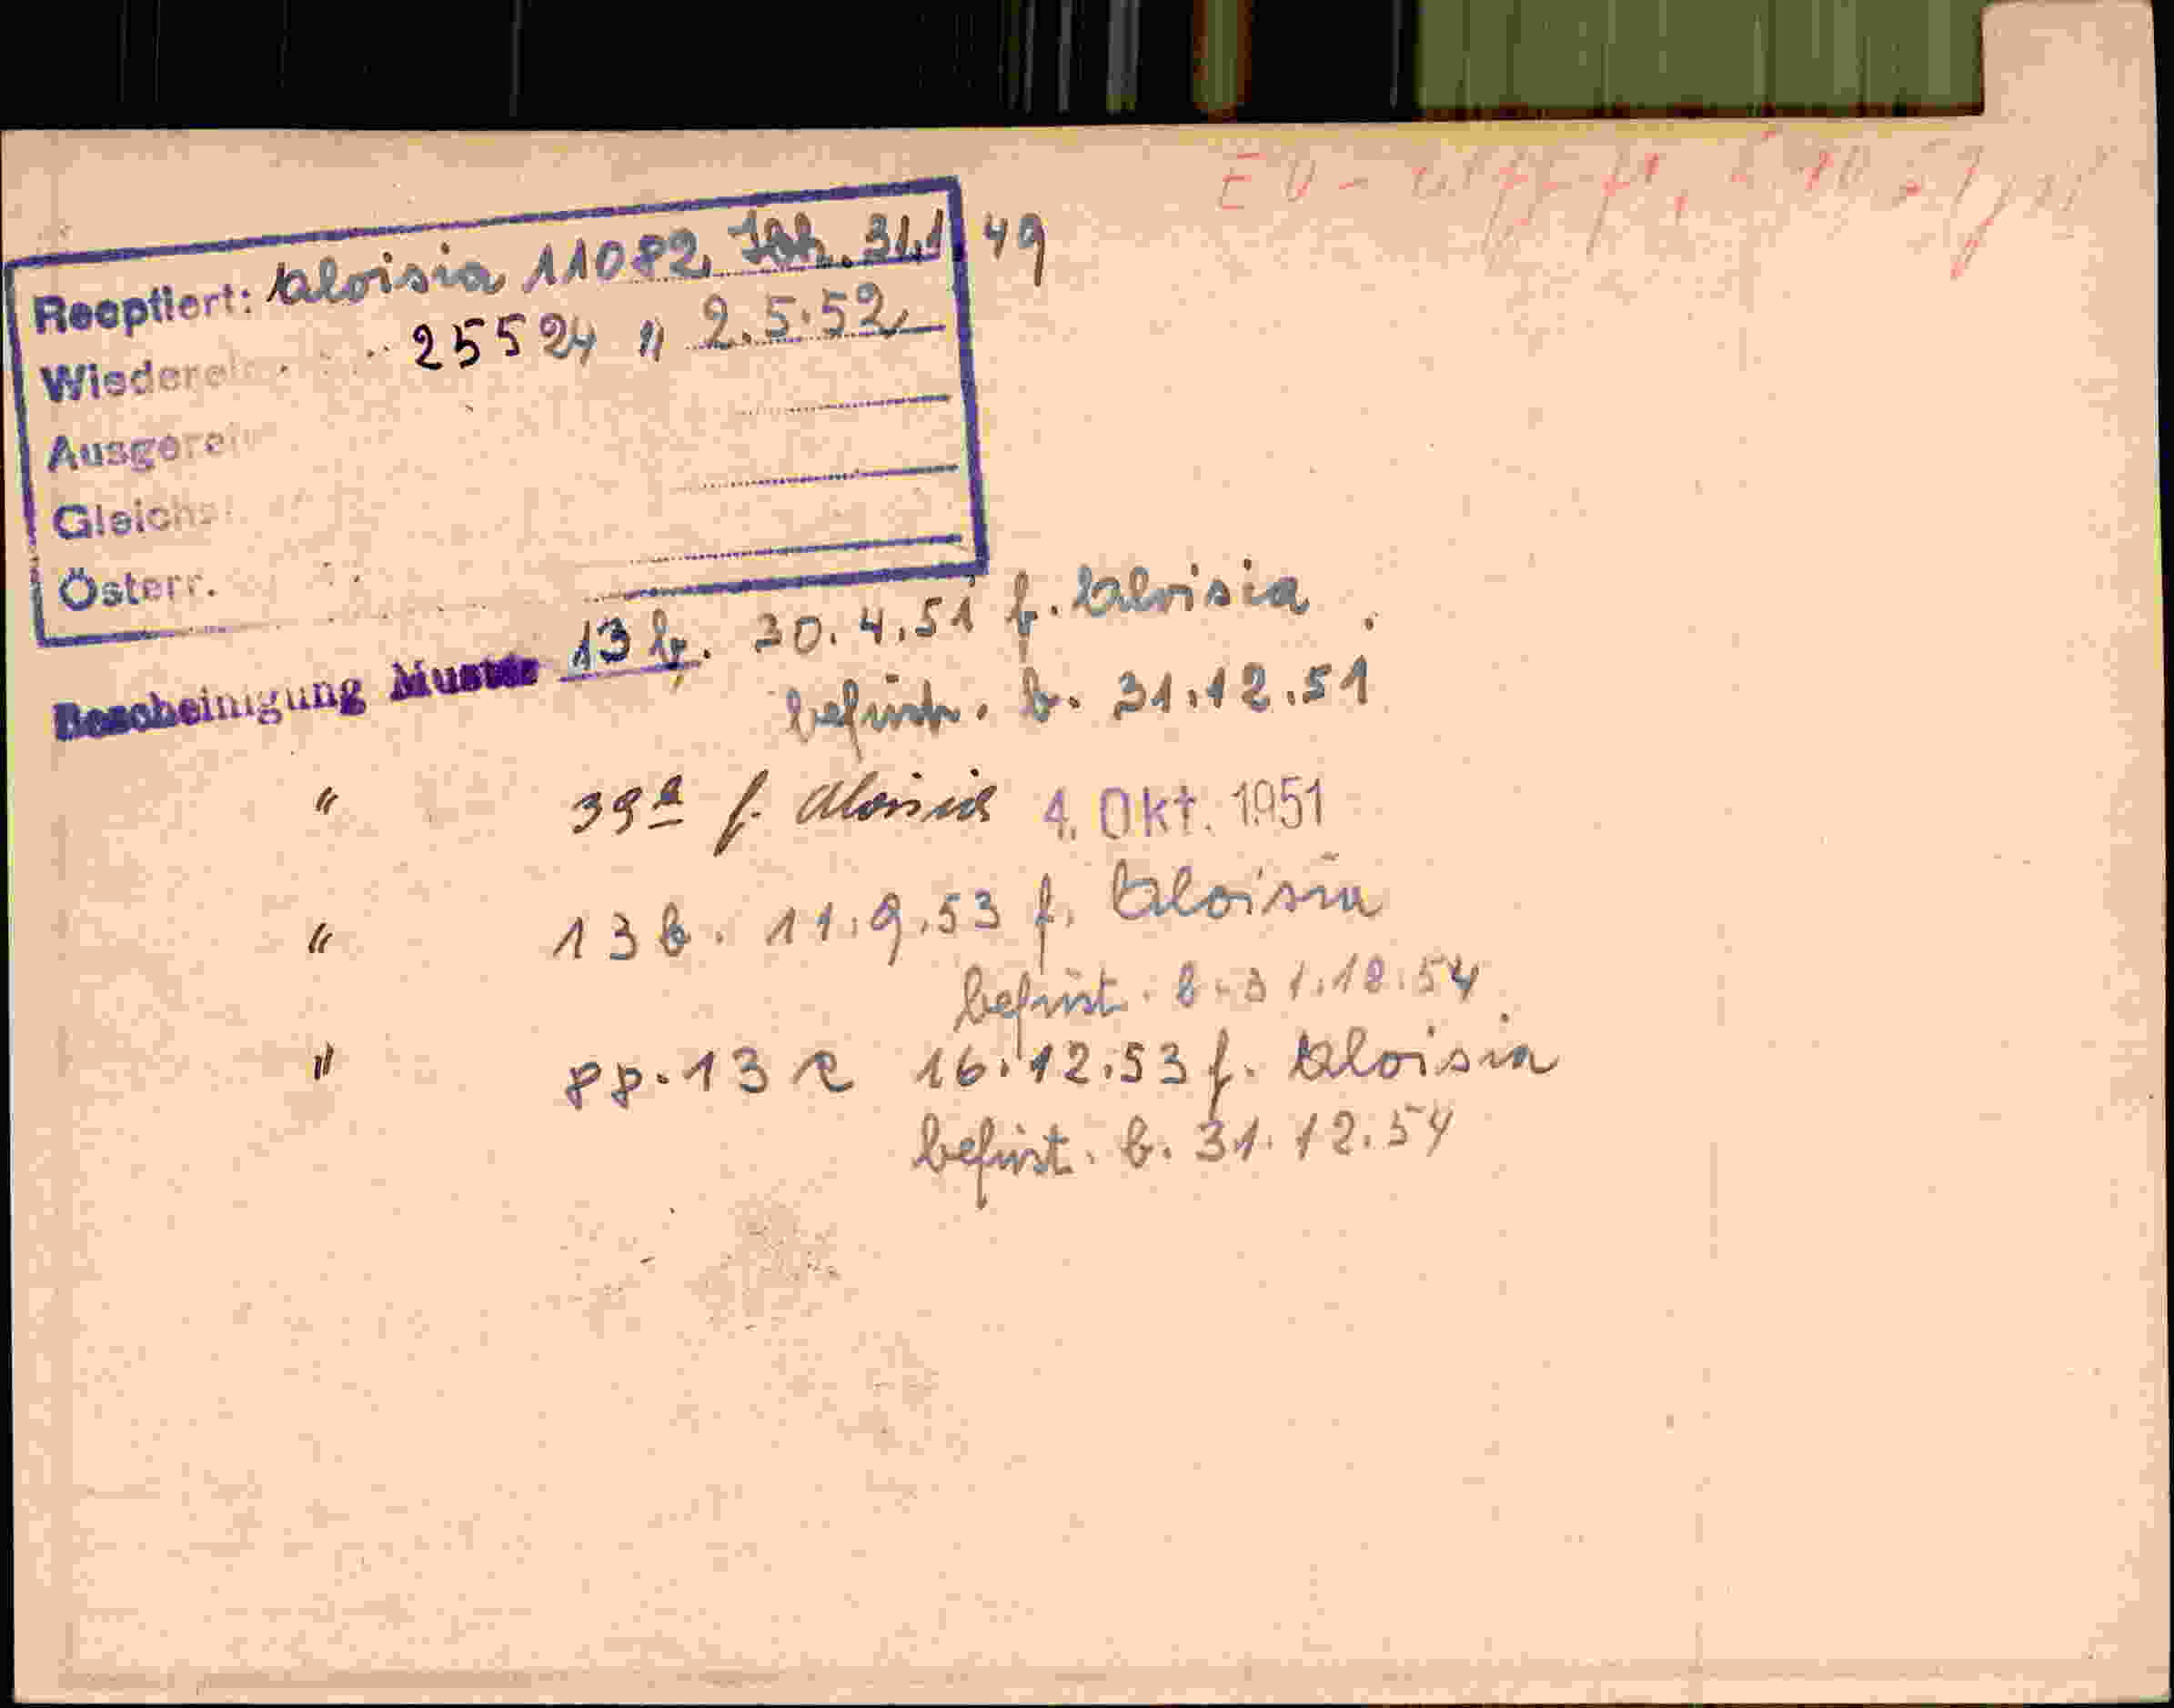 EU -
Reoptiert: Aloisia 11082 31.1.49
Wiederein 25524 " 2.5.52
Ausgerei
Gleichs
Österr.
Bescheinigung Muster 13 b. 30.4.51 f. Aloisia
befrist. b. 31.12.51
" 39a f. Aloisia 4. Okt. 1951
" 13 b. 11.9.53 f. Aloisia
befrist. b. 31.12.54
" 13 16.12.53 f. Aloisia
befrist. b. 31.12.54